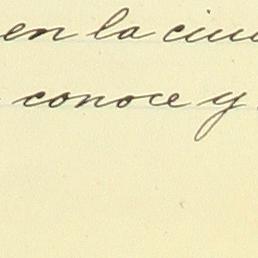 en la ciu
conoce y